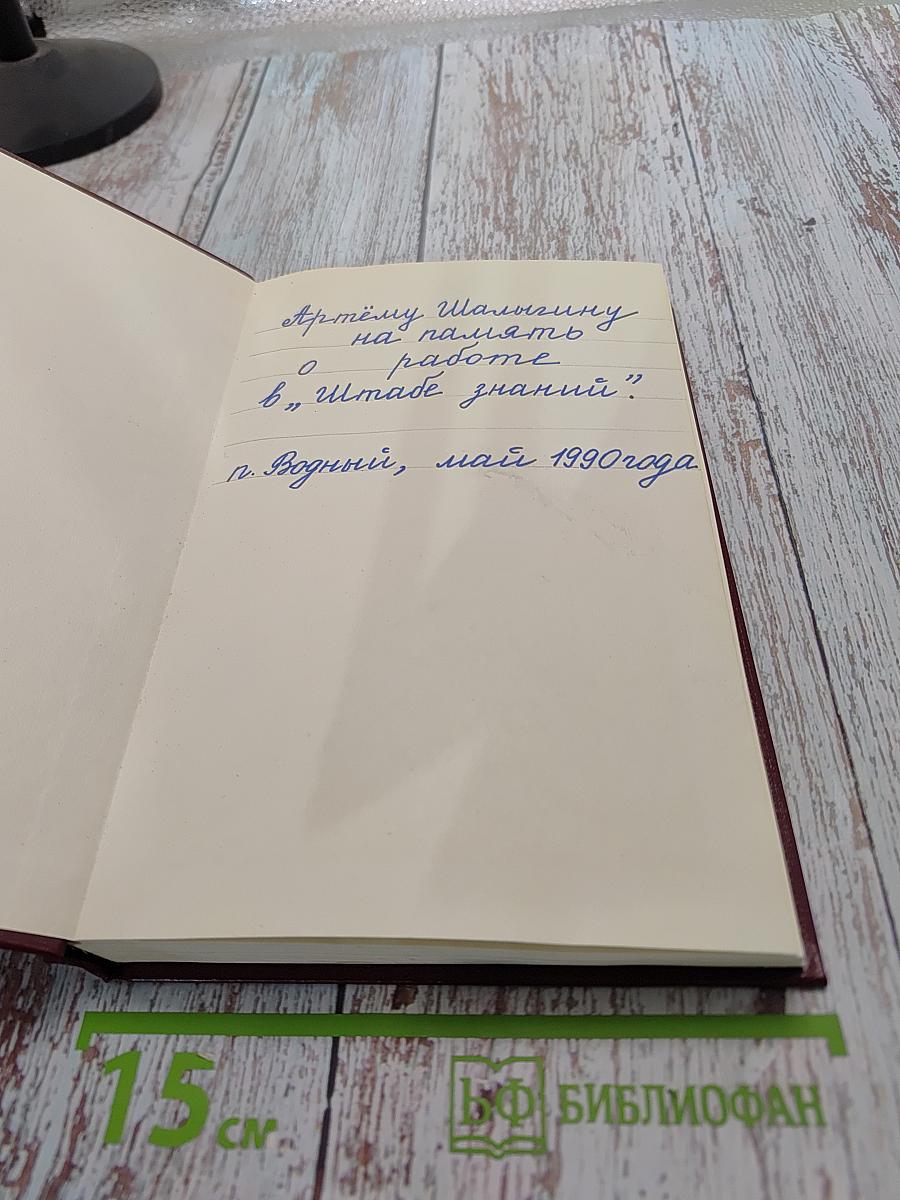 Артёму Шалыгину
на память
о работе
в „Штабе знаний".
п. Водный, май 1990 года
15 см
БФ БИБЛИОФАН